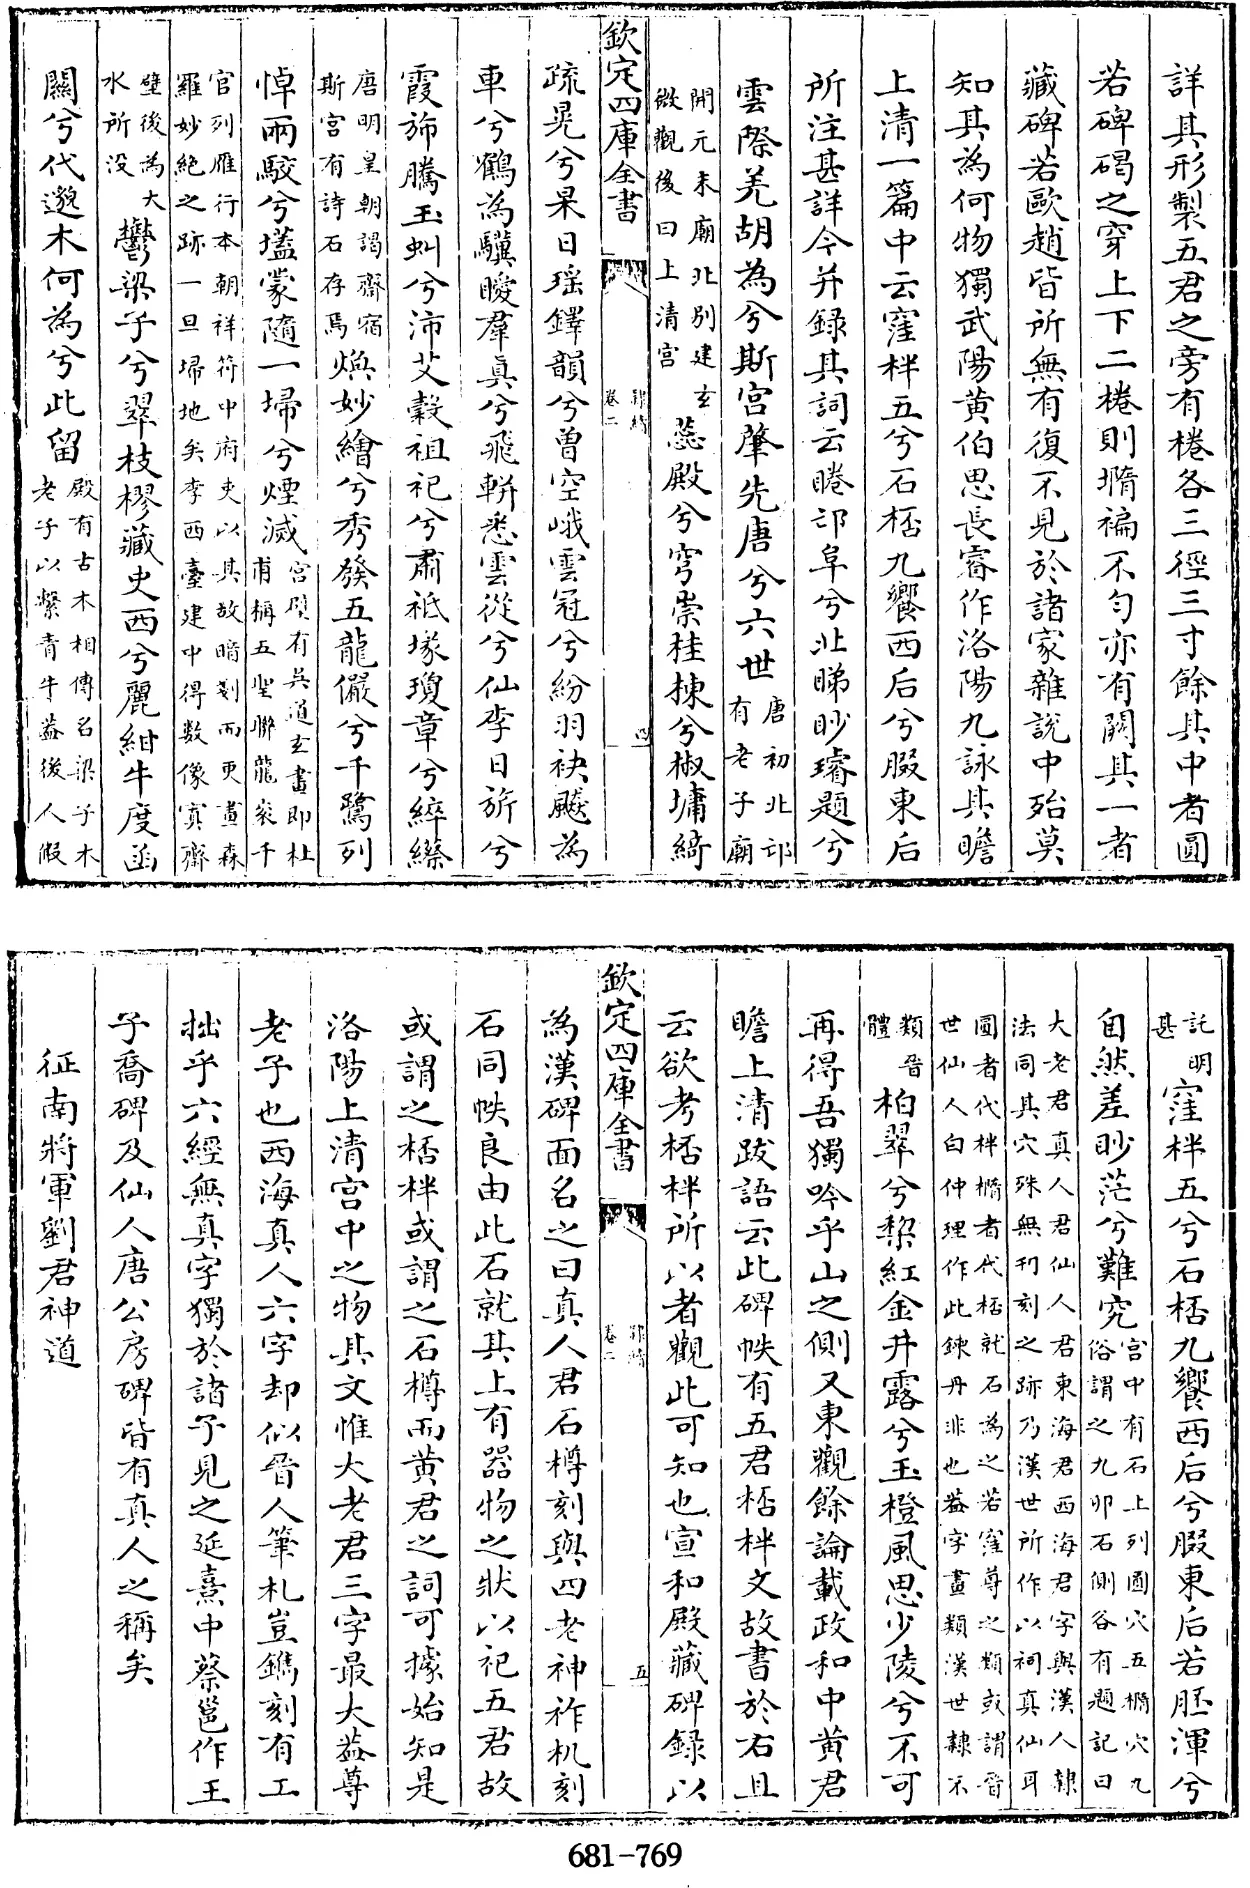 詳其形製五君之旁有棬各三徑三寸餘其中者圓
若碑碣之穿上下二棬則墮褊不勻亦有闕其一者
藏碑若歐趙皆所無有復不見於諸家雜說中殆莫
知其為何物獨武陽黄伯思長睿作洛陽九詠其瞻
上清一篇中云窪柈五兮石桮九饗西后兮腏東后
所注甚詳今并録其詞云睠邙阜兮北睇眇璿題兮
雲際羌胡為兮斯宫肇先唐兮六世唐初北邙有老子廟
開元末廟北別建玄微觀後曰上清宫蘂殿兮穹崇桂揀兮椒墉綺
欽定四庫全書 隸續 卷二 四
疏晃兮杲日瑶鐸韻兮曾空峨雲冠兮紛羽袂飈為
車兮鶴為驥曖羣真兮飛軿悉雲從兮仙李日旂兮
霞斾騰玉虯兮沛艾穀祖祀兮肅祗瑑瓊章兮綷縩
唐明皇朝謁齋宿斯宫有詩石存焉煥妙繪兮秀發五龍儼兮千鷺列
悼兩駮兮壒蒙隨一埽兮煙滅宫壁有吳道玄畫即杜甫稱五聖聯龍衮千
官列雁行本朝祥符中府吏以其故暗剗而更畫森羅妙絶之跡一旦埽地矣李西臺建中得数像寘齋
壁後為大水所没鬱梁子兮翠枝樛藏史西兮麗紺牛度函
關兮代邈木何為兮此留殿有古木相傳名梁子木老子以繫青牛葢後人假
託明甚窪柈五兮石桮九饗西后兮腏東后若胚渾兮
自然差眇茫兮難究宫中有石上列圓穴五橢穴九俗謂之九卯石側各有題記曰
大老君真人君仙人君東海君西海君字與漢人隸法同其穴殊無刊刻之跡乃漢世所作以祠真仙耳
圓者代柈橢者代桮就石為之若窪尊之類或謂晉世仙人白仲理作此錬丹非也葢字畫類漢世隸不
類晉體柏翠兮棃紅金井露兮玉橙風思少陵兮不可
再得吾獨吟乎山之側又東觀餘論載政和中黄君
瞻上清跋語云此碑帙有五君桮柈文故書於右且
云欲考桮柈所以者觀此可知也宣和殿藏碑録以
欽定四庫全書 隸續 卷二 五
為漢碑面名之曰真人君石樽刻與四老神祚机刻
石同帙良由此石就其上有器物之狀以祀五君故
或謂之桮柈或謂之石樽而黄君之詞可據始知是
洛陽上清宫中之物其文惟大老君三字最大葢尊
老子也西海真人六字却似晉人筆札豈鐫刻有工
拙乎六經無真字獨於諸子見之延熹中蔡邕作王
子喬碑及仙人唐公房碑皆有真人之稱矣
征南將軍劉君神道
681-769